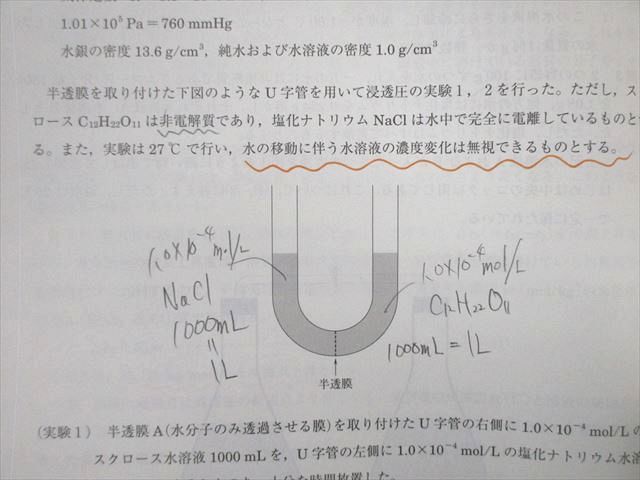 1.01×10⁵ Pa = 760 mmHg
水銀の密度 13.6 g/cm³，純水および水溶液の密度 1.0 g/cm³
半透膜を取り付けた下図のような U 字管を用いて浸透圧の実験 1，2 を行った。ただし，ス
ロース C₁₂H₂₂O₁₁ は非電解質であり，塩化ナトリウム NaCl は水中で完全に電離しているものと
る。また，実験は 27 ℃ で行い，水の移動に伴う水溶液の濃度変化は無視できるものとする。
1.0×10⁻⁴ mol/L
NaCl
1000mL
=
1L
1.0×10⁻⁴ mol/L
C₁₂H₂₂O₁₁
1000mL = 1L
半透膜
(実験 1) 半透膜 A(水分子のみ透過させる膜)を取り付けた U 字管の右側に 1.0×10⁻⁴ mol/L の
スクロース水溶液 1000 mL を，U 字管の左側に 1.0×10⁻⁴ mol/L の塩化ナトリウム水溶